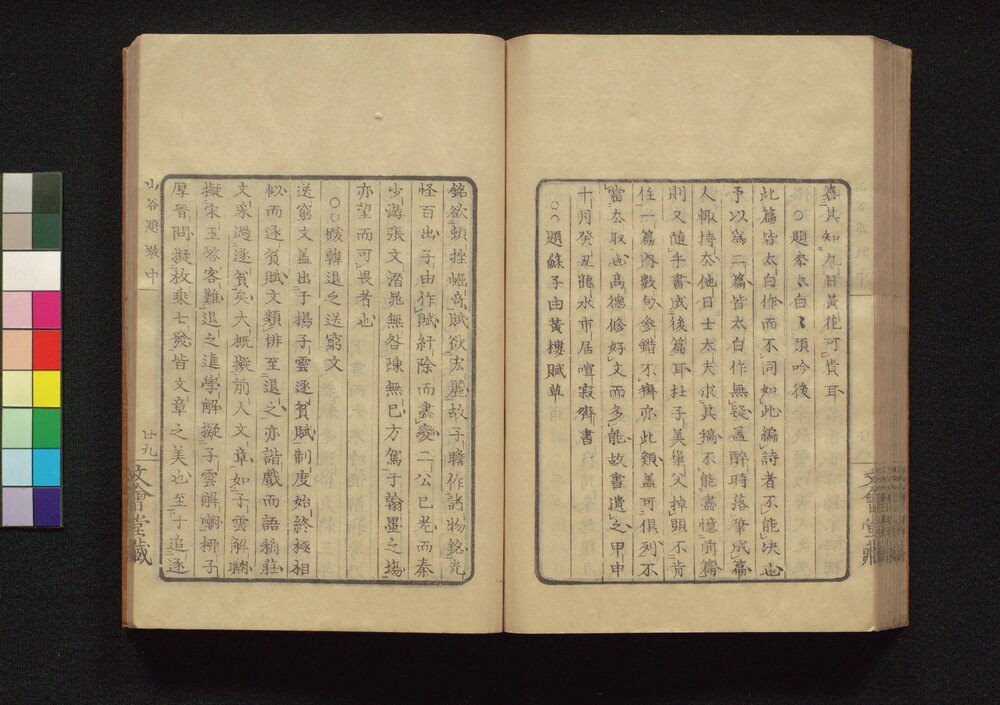 喜其知九日黃花可貴耳
○題李太白白頭吟後
此篇皆太白作而不同如此編詩者不能決也
予以為二篇皆太白作無疑蓋醉時落筆成篇
人輒持去他日士大夫求其稿不能盡憶前篇
則又隨手書成後篇耳杜子美巢父掉頭不肯
住一篇內數句參錯不齊亦此類蓋可俱列不
當去取也高德修好文而多能故書遺之甲申
十月癸丑龍水市居喧寂齋書
○○題蘇子由黃樓賦草
文會堂藏
銘欲頓挫崛奇賦欲宏麗故子瞻作諸物銘光
怪百出子由作賦紆除而盡變二公已老而秦
少游張文潛晁無咎陳無已方駕于翰墨之場
亦望而可畏者也
○○跋韓退之送窮文
送窮文蓋出于揚子雲逐貧賦制度始終極相
似而逐貧賦文類俳至退之亦諧戲而語稍莊
文采過逐貧矣大概擬前人文章如子雲解嘲
擬宋玉答客難退之進學解擬子雲解嘲柳子
厚晉問擬枚乘七發皆文章之美也至于追逐
山谷題跋中
廿九
文會堂藏